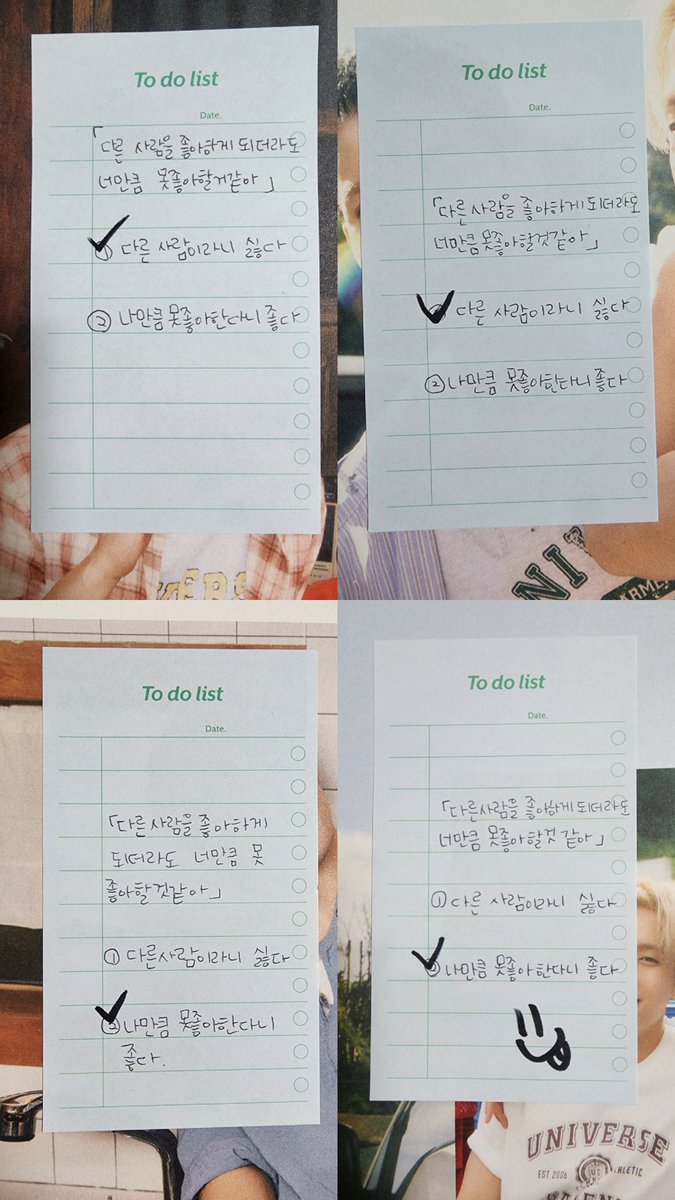 To do list
Date.
「다른 사람을 좋아하게 되더라도
너만큼 못좋아할거같아」
① 다른 사람이라니 싫다
② 나만큼 못좋아한다니 좋다
To do list
Date.
「다른 사람을 좋아하게 되더라도
너만큼 못좋아할것같아」
다른 사람이라니 싫다
② 나만큼 못좋아한다니 좋다
NI
To do list
Date.
「다른 사람을 좋아하게
되더라도 너만큼 못
좋아할것같아」
① 다른사람이라니 싫다
② 나만큼 못좋아한다니
좋다.
To do list
Date.
「다른사람을 좋아하게 되더라도
너만큼 못좋아할것 같아」
① 다른 사람이라니 싫다
② 나만큼 못좋아한다니 좋다
UNIVERSE
EST. 2006